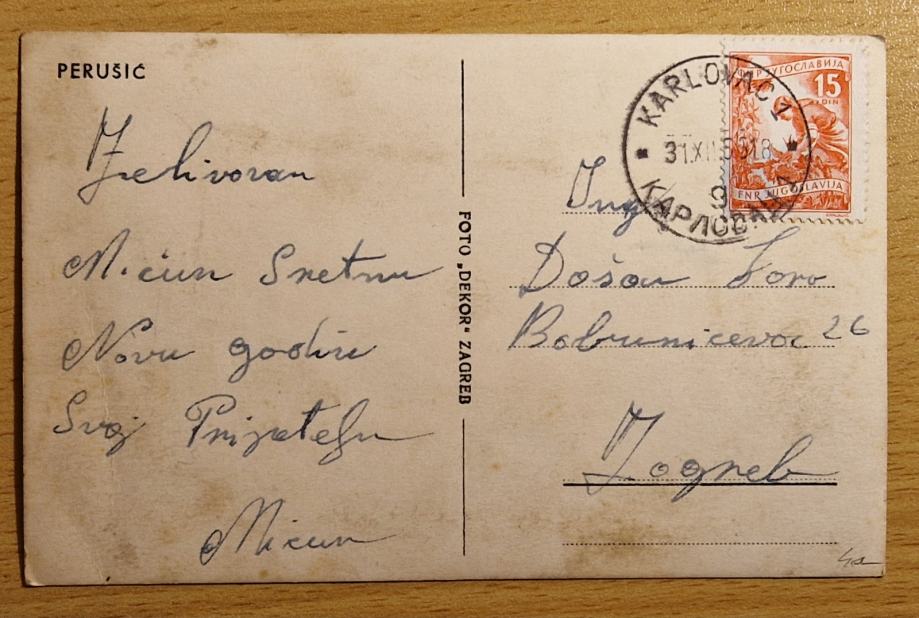 PERUŠIĆ
Želi vam
Mićun Sretnu
Novu godinu
Svoj Prijatelju
Mićun
FOTO „DEKOR" ZAGREB
KARLOVAC 1
31.XII.55 18
9
КАРЛОВАЦ 1
ФНР ЈУГОСЛАВИЈА
15
DIN
FNR JUGOSLAVIJA
Ing
Došav
26
Zagreb